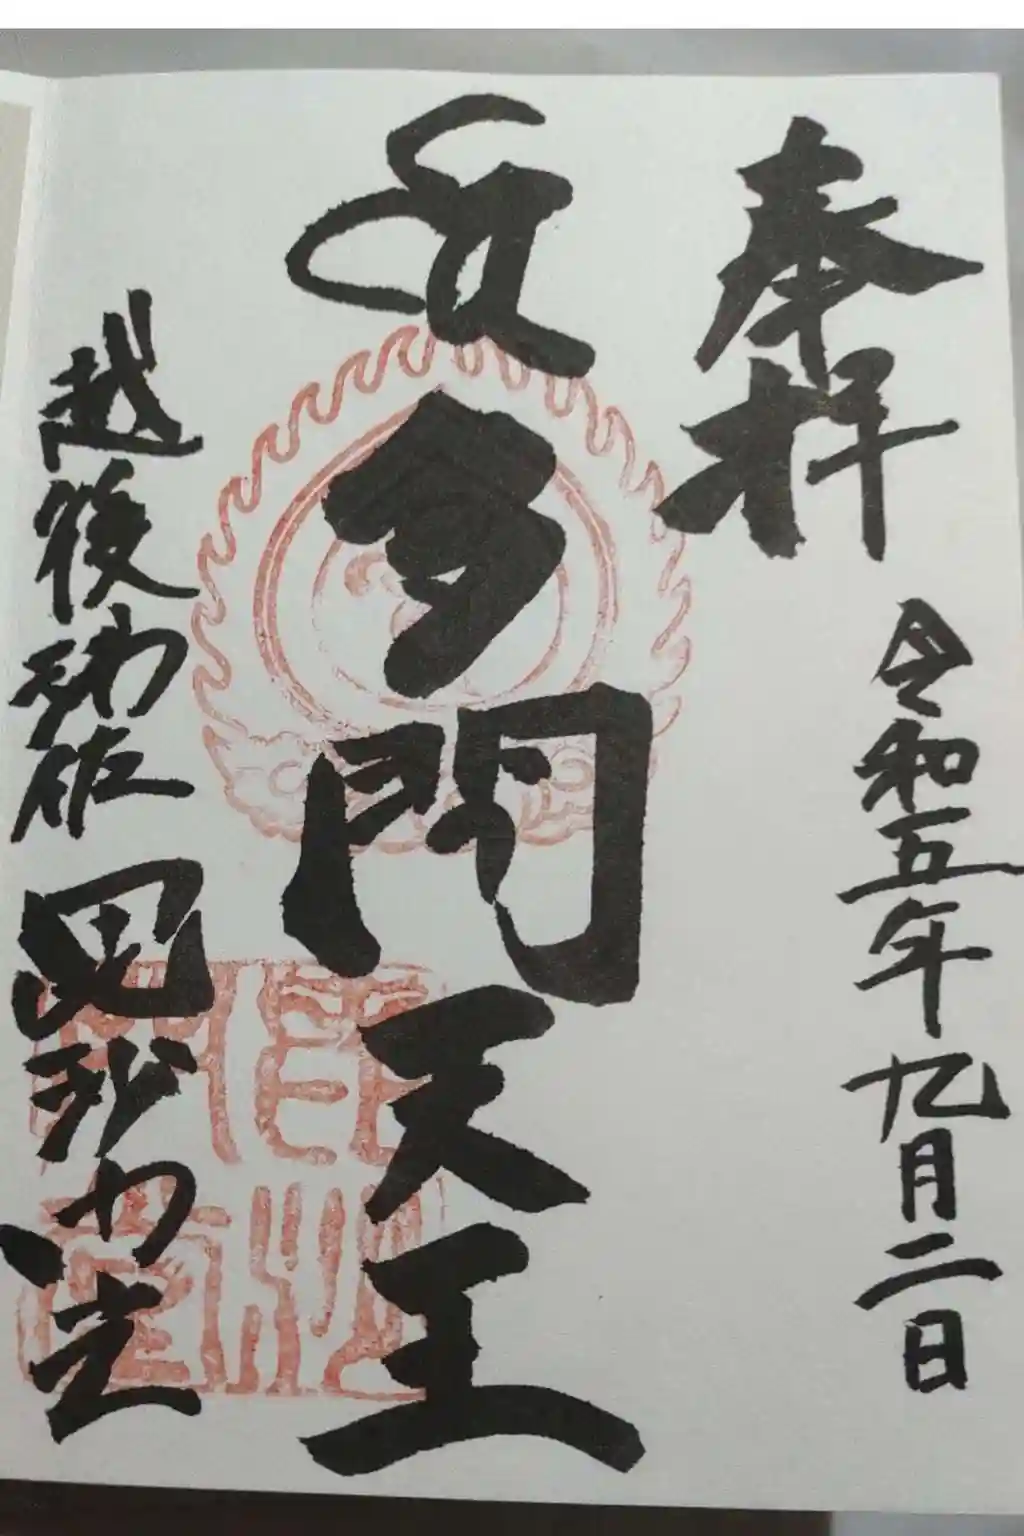 奉拝
令和五年九月二日
多聞天王
越後浦佐
毘沙門堂